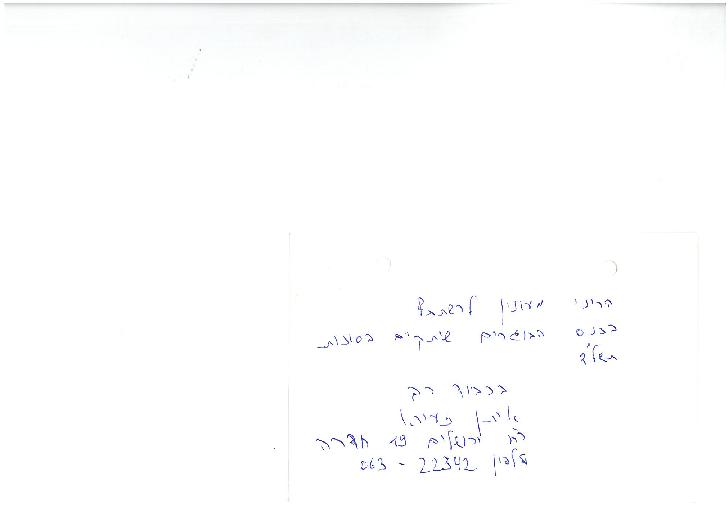 הריני מעונין להשתתף
בכנס הבוגרים שיתקיים בסוכות
תשל"ד
בכבוד רב
רח' ירושלים חדרה
טלפון 22342 - 063